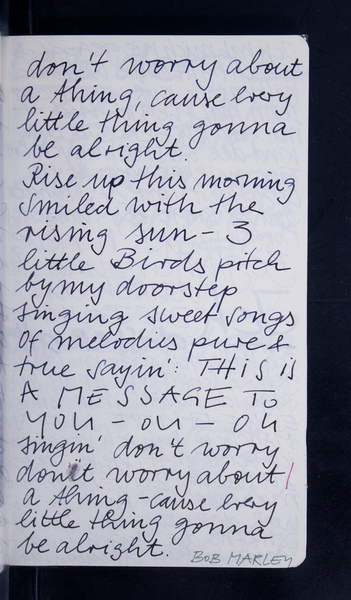 don't worry about
a thing, cause every
little thing gonna
be alright.
Rise up this morning
smiled with the
rising sun - 3
little Birds pitch
by my doorstep
singing sweet songs
Of melodies pure &
true sayin': THIS is
A MESSAGE TO
YOU - OU - OU
singin' don't worry
don't worry about /
a thing - cause every
little thing gonna
be alright.
BOB MARLEY